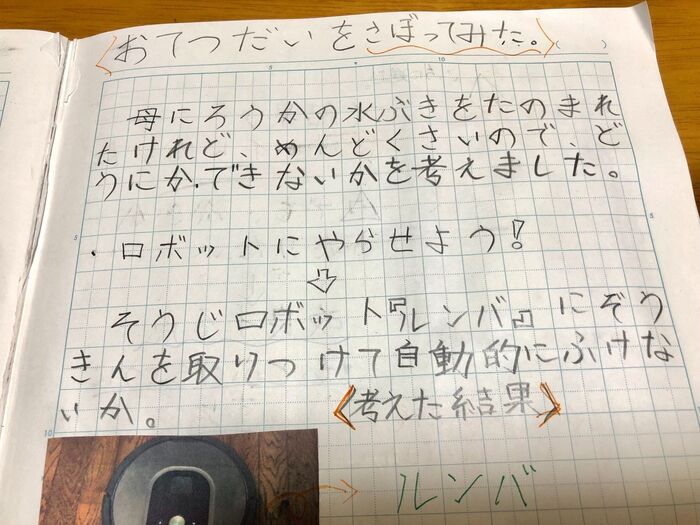 おてつだいをさぼってみた。
母にろうかの水ぶきをたのまれ
たけれど、めんどくさいので、ど
うにか、できないかを考えました。
・ロボットにやらせよう!
⇩
そうじロボット『ルンバ』にぞう
きんを取りつけて自動的にふけな
いか。
《考えた結果》
ルンバ